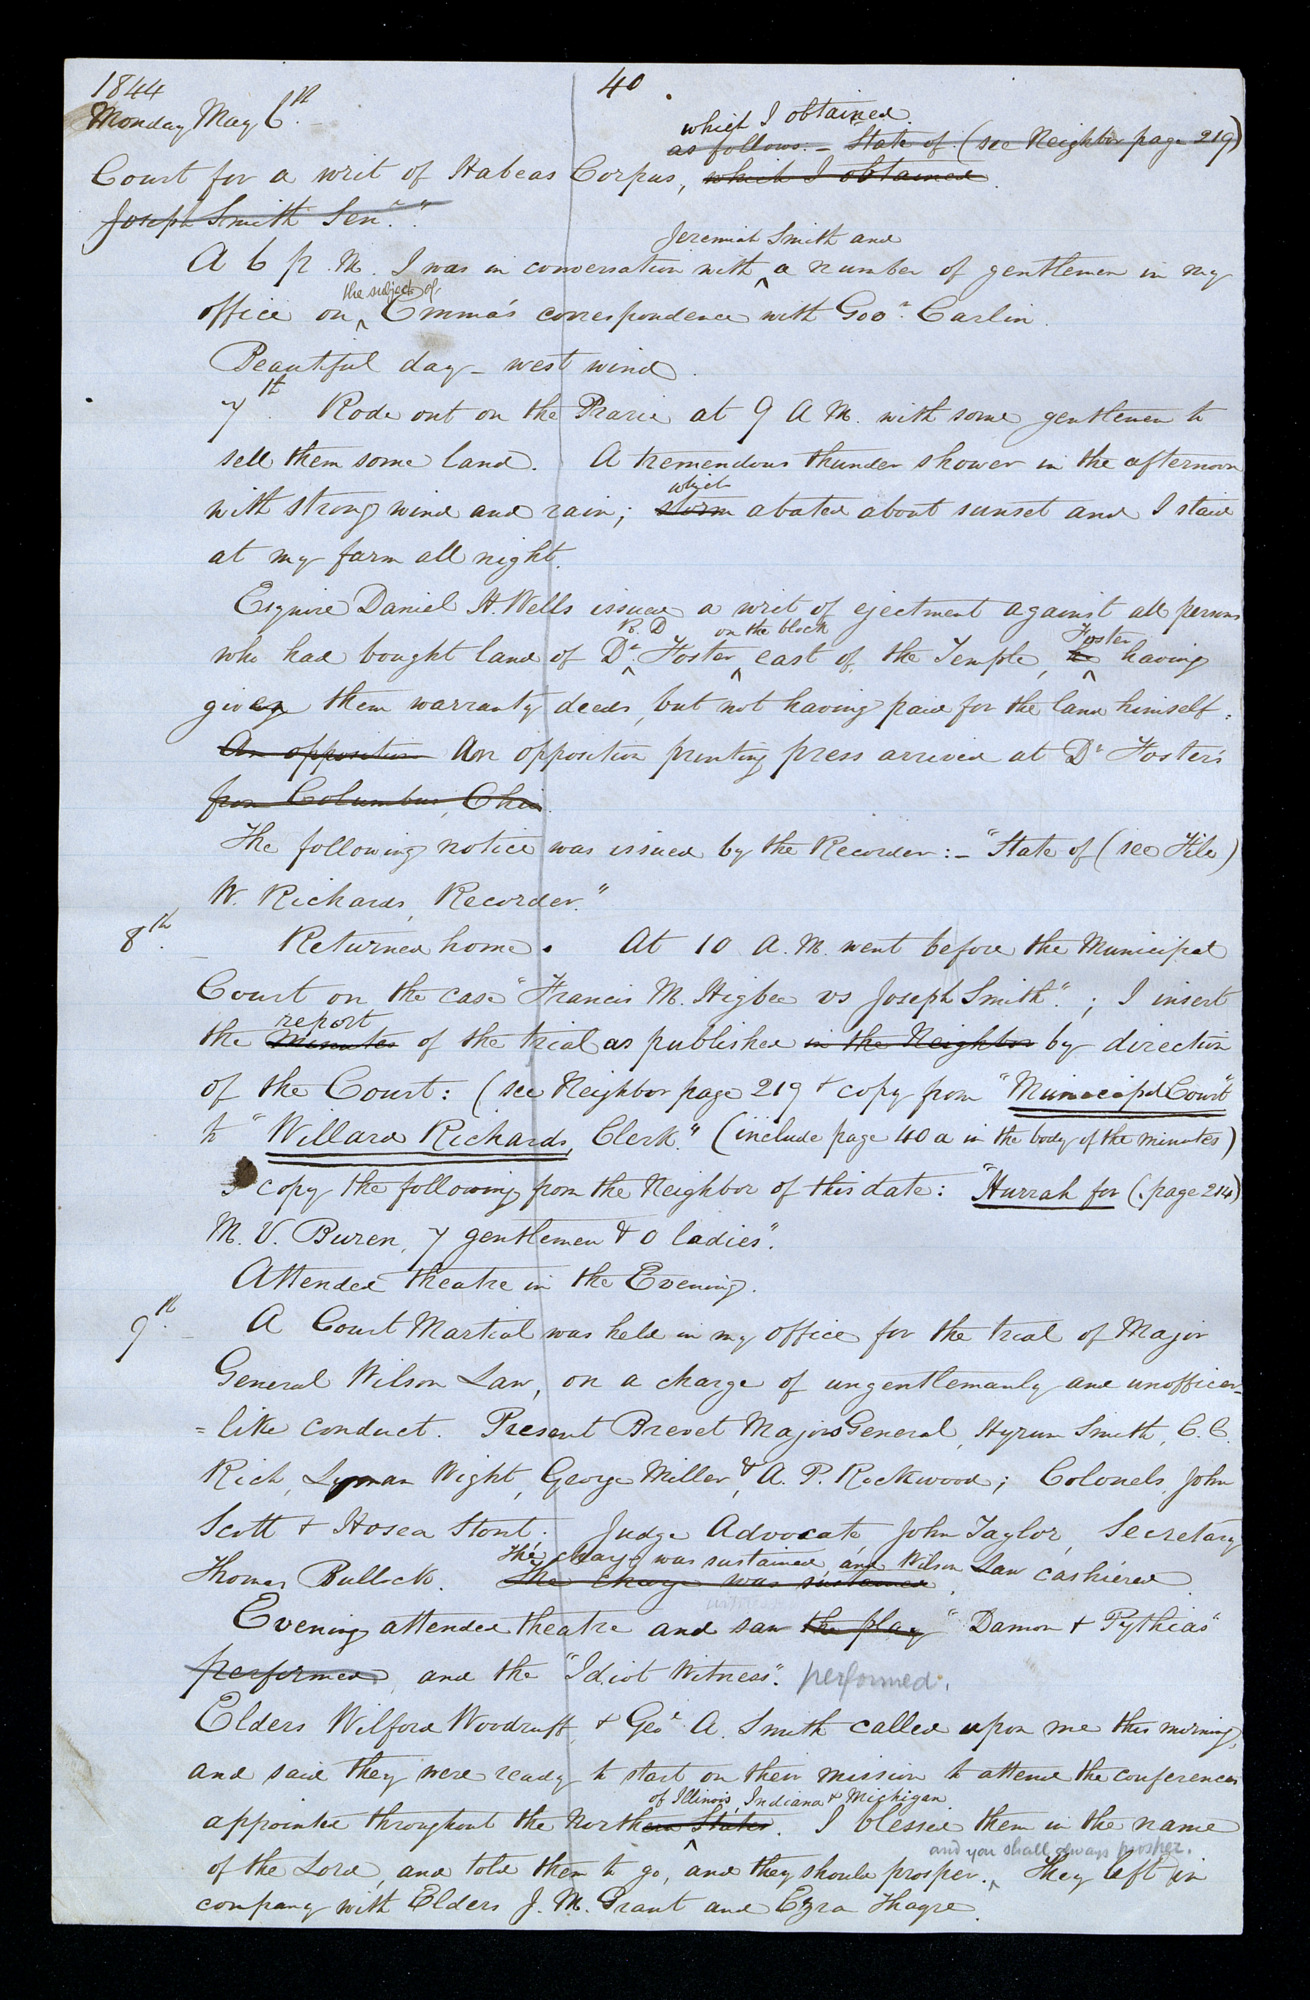 1844
40
Monday May 6th.
which I obtained.
as follows:– State of (see Neighbor page 219)
Court for a writ of Habeas Corpus, which I obtained.
Joseph Smith Senr."
Jeremiah Smith and
A 6 p. M. I was in conversation with a number of gentlemen in my
the subject of
office on Emma's correspondence with Gov. Carlin.
Beautiful day – west wind.
7th. Rode out on the Prarie at 9 A M. with some gentlemen to
sell them some land. A tremendous thunder shower in the afternoon
which
with strong wind and rain; storm abated about sunset and I staid
at my farm all night.
Esquire Daniel H. Wells issued a writ of ejectment against all persons
R. D on the block Foster
who had bought land of Dr. Foster east of the Temple, he having
given them warranty deeds, but not having paid for the land himself.
An opposition An opposition printing press arrived at Dr Foster's
from Columbus, Ohio.
The following notice was issued by the Recorder:– "State of (see File)
W. Richards, Recorder."
8th. Returned home. At 10 A. M. went before the Municipal
Court on the case "Francis M. Higbee vs Joseph Smith."; I insert
report
the Minutes of the trial as published in the Neighbor by direction
of the Court: (see Neighbor page 219 & copy from "Municipal Court"
to "Willard Richards, Clerk." (include page 40 a in the body of the minutes)
I copy the following from the Neighbor of this date: "Hurrah for (page 214)
M. V. Buren, 7 gentlemen & 0 ladies".
Attended theatre in the Evening.
9th. A Court Martial was held in my office for the trial of Major
General Wilson Law, on a charge of ungentlemanly and unofficer-
=like conduct. Present Brevet Majors General, Hyrum Smith, C. C.
Rich, Lyman Wight, George Miller, & A. P. Rockwood; Colonels, John
Scott & Hosea Stout. Judge Advocate John Taylor, Secretary
The charge was sustained, and Wilson Law cashiered
Thomas Bullock. The charge was sustained
Evening attended theatre and saw the play "Damon & Pythias"
performed and the "Idiot Witness". performed.
Elders Wilford Woodruff, & Geo. A. Smith called upon me this morning,
and said they were ready to start on their mission to attend the conferences
of Illinois, Indiana & Michigan
appointed throughout the northern States. I blessed them in the name
and you shall always prosper.
of the Lord, and told them to go, and they should prosper. They left in
company with Elders J. M. Grant and Ezra Thayre.